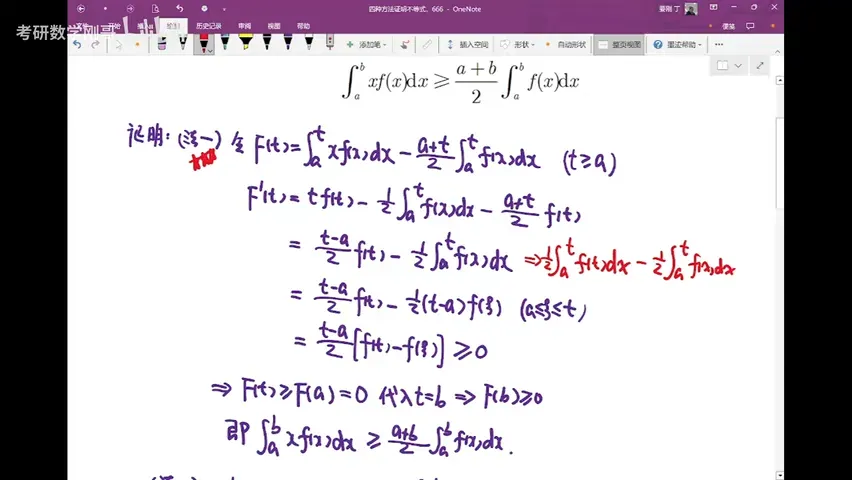 四种方法证明不等式、666 - OneNote
考研数学刚哥
文件 开始 插入 绘图 历史记录
添加笔 插入空间 形状 自动形状 整页视图 墨迹帮助 便笺 分享
∫_a^b xf(x)dx ≥ (a+b)/2 ∫_a^b f(x)dx
证明: (法一) 令 F(t)=∫_a^t xf(x)dx - (a+t)/2 ∫_a^t f(x)dx (t≥a)
F'(t) = tf(t) - 1/2 ∫_a^t f(x)dx - (a+t)/2 f(t)
= (t-a)/2 f(t) - 1/2 ∫_a^t f(x)dx ⇒ 1/2 ∫_a^t f(t)dx - 1/2 ∫_a^t f(x)dx
= (t-a)/2 f(t) - 1/2 (t-a) f(ξ) (a≤ξ≤t)
= (t-a)/2 [f(t) - f(ξ)] ≥ 0
⇒ F(t) ≥ F(a) = 0 代入 t=b ⇒ F(b) ≥ 0
即 ∫_a^b xf(x)dx ≥ (a+b)/2 ∫_a^b f(x)dx.